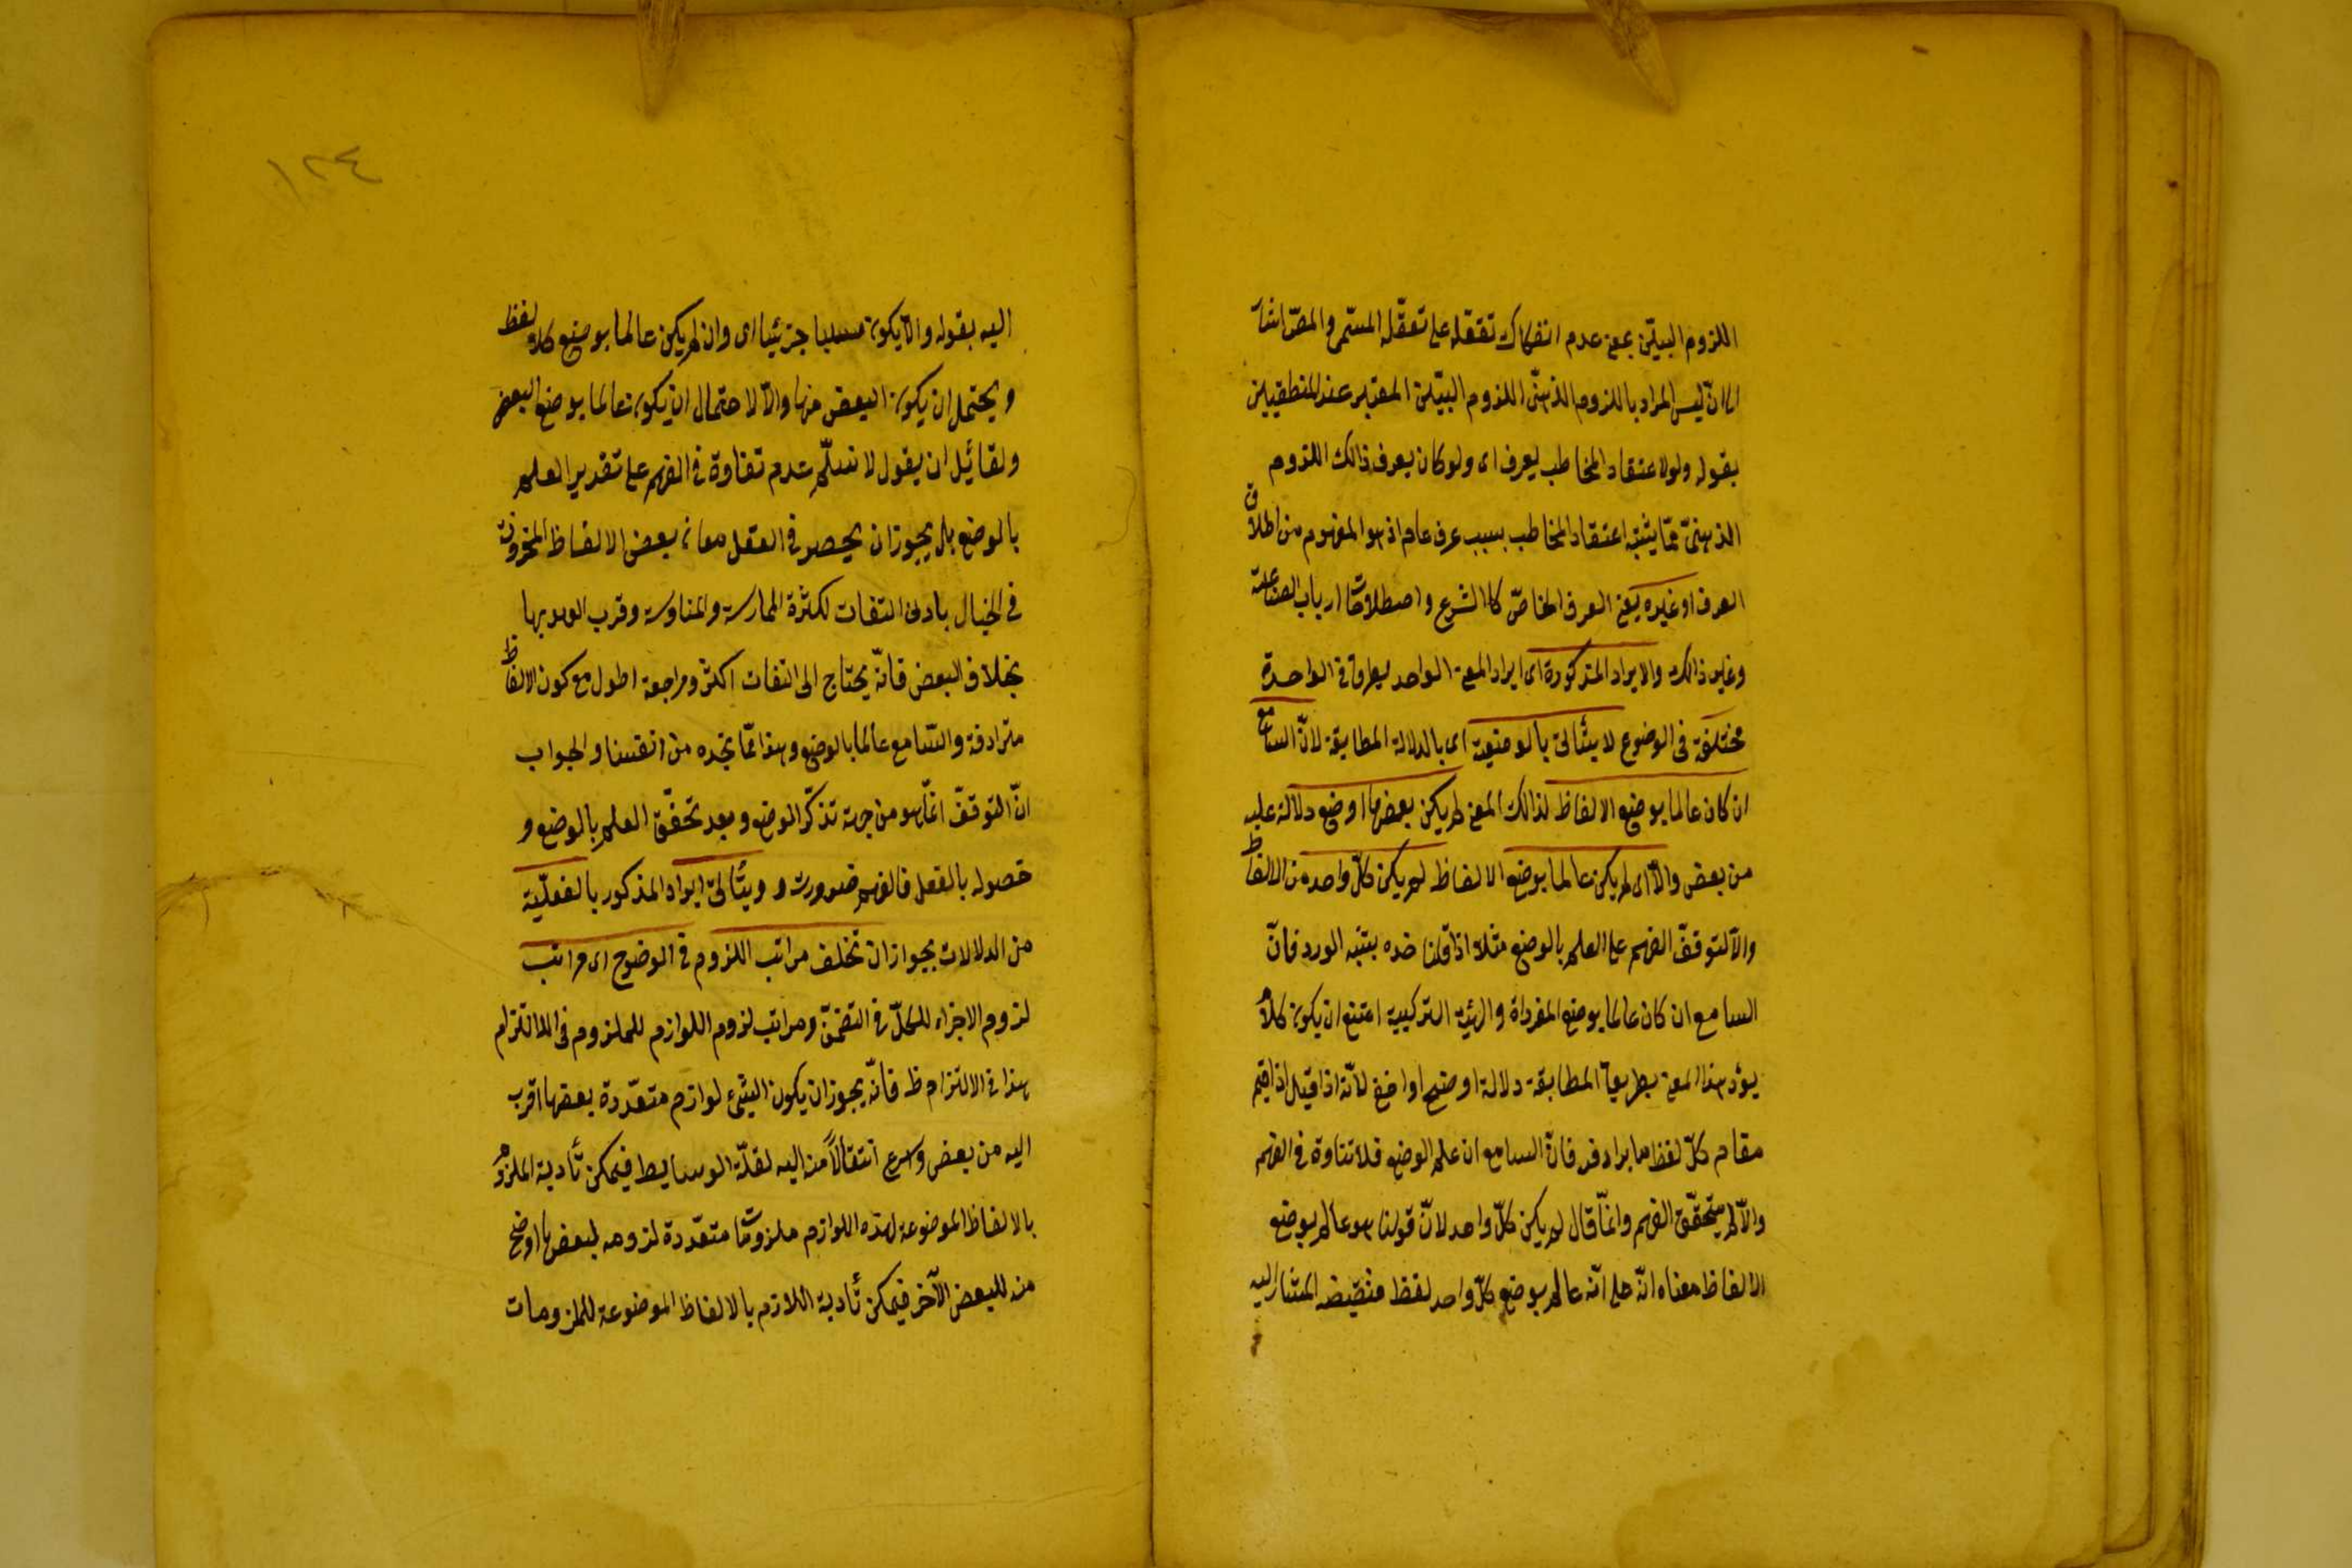 اللزوم البيّن بمعنى عدم انفكاك تعقله على تعقّل المسمى والمصّ اشار
الى انّ ليس المراد باللزوم الذهنّى اللزوم البيّن المعتبر عند المنطقيين
بقوله ولو لاعتقاد المخاطب يعرف اى ولو كان يعرف ذالك اللزوم
الذهنىّ ممّا يثبته اعتقاد المخاطب بسبب عرف عام اذ هو المفهوم من اطلاق
العرف او غيره يعنى العرف الخاصّ كالشرع واصطلاحات ارباب الصناعة
وغير ذالك والايراد المذكورة اى ايراد المعنى الواحد بطرق فى الواحدة
مختلفة فى الوضوع لا يتأتى بالوضعية اى بالدلالة المطابقة لانّ السامع
ان كان عالما بوضع الالفاظ لذالك المعنى لم يكن بعضها اوضح دلالة عليه
من بعض والّا اى لم يكن عالما بوضع الالفاظ لم يكن كلّ واحد من الالفاظ
والّا لتوقفّ الفهم على العلم بالوضع مثلا اذا قلنا خده يشبه الورد فانّ
السامع ان كان عالما بوضع المفرداة والهيئة التركيبية امتنع ان يكون كلام
يؤد هذا المعنى بطريق المطابقة دلالة اوضح او اخفى لانّه اذا قيل اذا قيم
مقام كلّ لفظ ما يرادفه فانّ السامع ان علم الوضع فلا تتاوة فى الفهم
والّا لم يتحقّق الفهم وانّما قال لم يكن كلّ واحد لانّ قولنا هو عالم بوضع
الالفاظ معناه انّه على انّه عالم بوضع كلّ واحد لفظ فنقيضه المشار اليه
١٢٤
اليه بقوله والّا يكون سلبا جزئيا اى وان لم يكن عالما بوضع كل لفظ
ويحتمل ان يكون البعض منها والّا لاحتمال ان يكون عالما بوضع البعض
ولقائل ان يقول لا نسلّم عدم تفاوة فى الفهم على تقدير العلم
بالوضع بل يجوز ان يحصر فى العقل معانى بعض الالفاظ المخزونة
فى الخيال بادنى التفات لكثرة الممارسة والمناوسة وقرب العهد بها
بخلاف البعض فانّه يحتاج الى التفات اكثر ومراجعة اطول مع كون الالفاظ
مترادفة والسّامع عالما بالوضع وهذا ممّا نجده من انفسنا والجواب
انّ التوقفّ انمّا هو من جهة تذكّر الوضع وبعد تحقّق العلم بالوضع و
حصوله بالفعل فالفهم ضرورت و ويتأتى ايراد المذكور بالعقليّة
من الدلالات بجواز ان تختلف مراتب اللزوم فى الوضوح اى مراتب
لزوم الاجزاء للكلّ فى التضمّن ومراتب لزوم اللوازم للملزوم فى الالتزام
هذا فى الالتزام ظ فانّه يجوز ان يكون الشئ لوازم متعدّدة بعضها اقرب
اليه من بعض واسرع انتقالاً منه اليه لقلّة الوسايط فيمكن تأدية الملزوم
بالالفاظ الموضوعة لهذه اللوازم ملزومات متعدّدة لزومه لبعضها اوضح
منه للبعض الآخر فيمكن تأدية اللازم بالالفاظ الموضوعة للملزومات